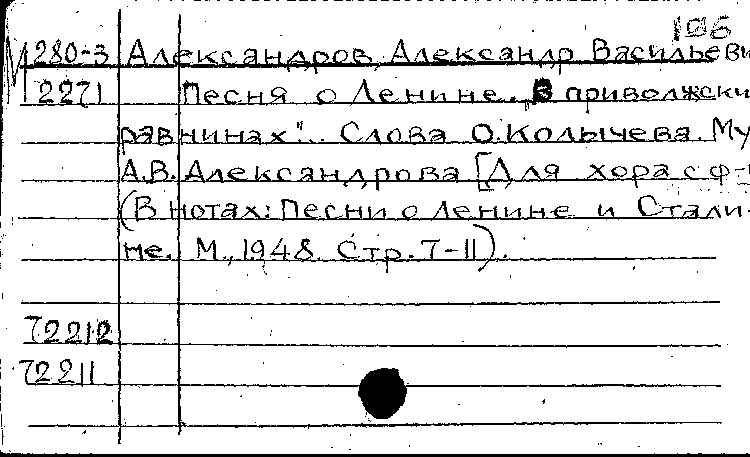 106
М 280-3 Александров, Александр Василъеви
2271 Песня о Ленине. „В приволжски
равнинах"... Слова О.Колычева. Му
А.В. Александрова [Для хора с ф-
(В нотах: Песни о Ленине и Стали-
не. М., 1948. Стр. 7-11).
72212
72211